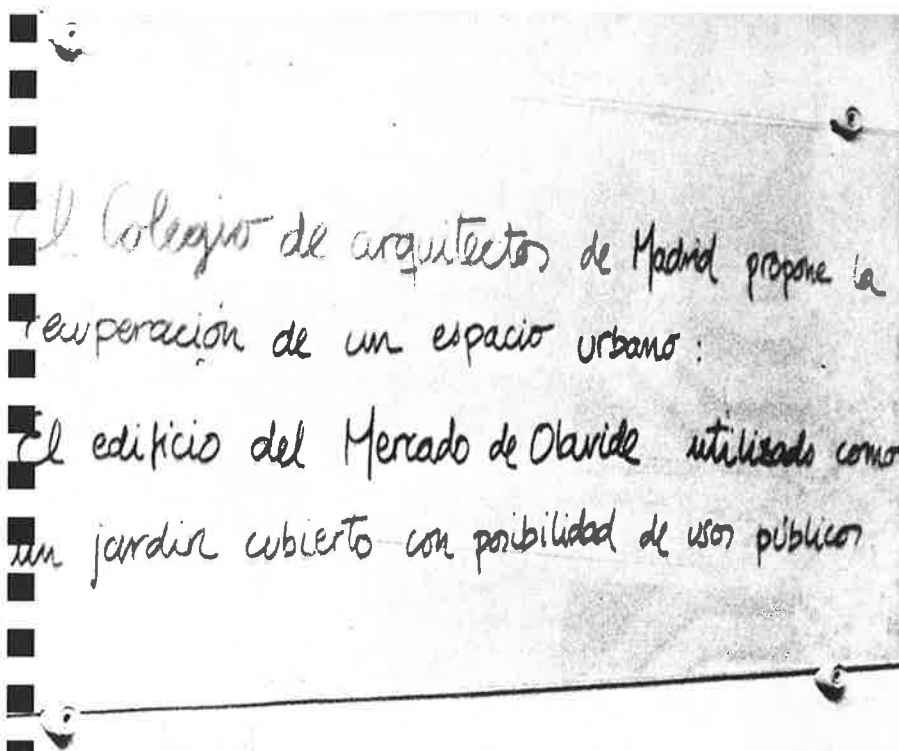 El Colegio de arquitectos de Madrid propone la
recuperación de un espacio urbano:
El edificio del Mercado de Olavide utilizado como
un jardin cubierto con posibilidad de usos públicos